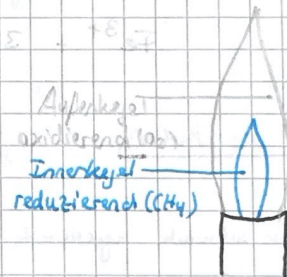 Außenkegel
oxidierend (O₂)
Innenkegel
reduzierend (CH₄)